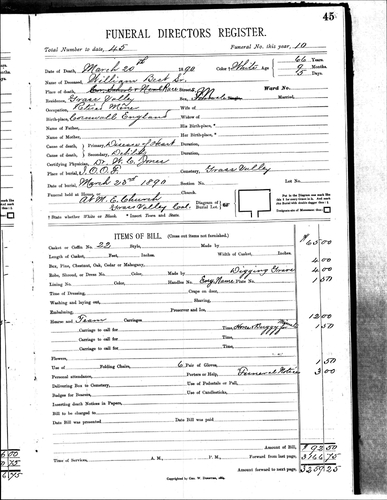 45
FUNERAL DIRECTORS REGISTER.
Total Number to date, 45 Funeral No. this year, 10
Date of Death, March 20th 1890 Color † White Age 66 Years. 9 Months. 5 Days.
Name of Deceased, William Best Sr.
Place of death, Street: Ward No.
Residence, Grass Valley Sex, Male Married,
Occupation, Retired Miner Wife of
Birthplace, Cornwall England Widow of
Name of Father, His Birthplace, *
Name of Mother, Her Birthplace, *
Cause of death, } Primary, Disease of Heart Duration,
Cause of death, } Secondary, Debility Duration,
Certifying Physician, Dr. W. C. Jones
Place of burial, I.O.O.F. Cemetery, Grass Valley
Date of burial, March 23rd 1890 Section No. Lot No.
Funeral held at House, At M. E. Church
Grass Valley Cal.
Diagram of Burial Lot
† State whether White or Black. * Insert Town and State.
ITEMS OF BILL. (Cross out items not furnished.)
Casket or Coffin No. 22 Style, Made by $ 65.00
Length of Casket, Feet, Inches, Width of Casket, Inches.
Box, Pine, Chestnut, Oak, Cedar or Mahogany, 4.00
Robe, Shroud, or Dress No. Color, Made by Digging Grave 4.00
Lining No. Color, Handles No. Eng Name Plate No. 1.50
Time of Dressing, Crape on door,
Washing and laying out, Shaving,
Embalming, Preserver and Ice,
Hearse and Team Carriages 12.00
Carriage to call for Time, Horse & Buggy 1.50
Carriage to call for Time,
Carriage to call for Time,
Flowers,
Use of Folding Chairs, 6 Pair of Gloves, 1.50
Personal attendance, Porters or Help, Funeral Notices 3.00
Delivering Box to Cemetery, Use of Pedestals or Pall,
Badges for Bearers, Use of Candlesticks,
Inserting death Notices in Papers,
Bill to be charged to
Date Bill was presented Date Bill was paid
Amount of Bill, $ 92.50
Time of Services, A. M., P. M. Forward from last page,
Amount forward to next page,